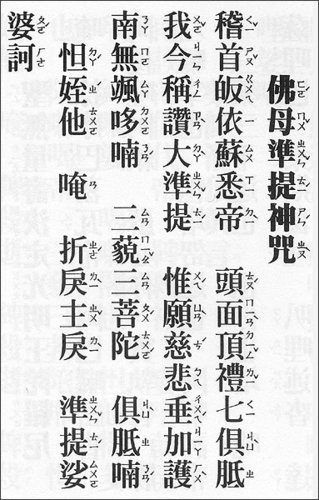 佛母準提神咒
稽首皈依蘇悉帝　頭面頂禮七俱胝
我今稱讚大準提　惟願慈悲垂加護
南無颯哆喃　三藐三菩陀　俱胝喃
怛姪他　唵　折戾主戾　準提娑
婆訶